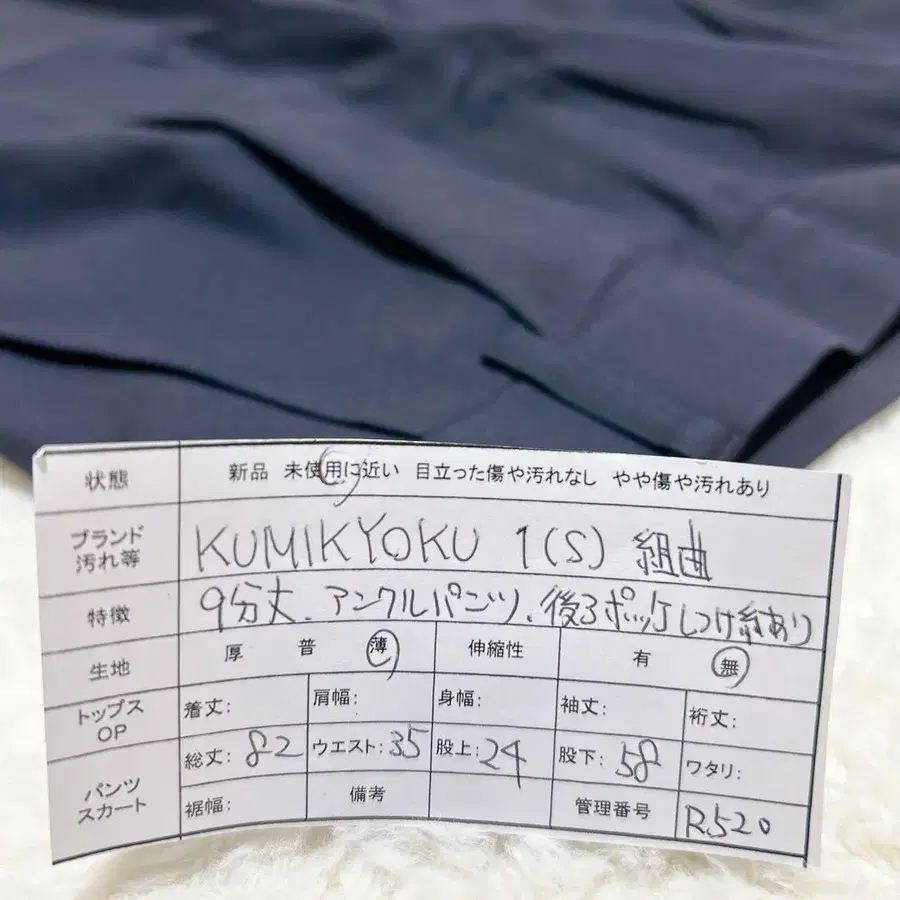 状態 新品 未使用に近い 目立った傷や汚れなし やや傷や汚れあり
ブランド 汚れ等 KUMIKYOKU 1(S) 組曲
特徴 9分丈、アンクルパンツ、後ろポッケしつけ糸あり
生地 厚 普 薄 伸縮性 有 無
トップス OP 着丈: 肩幅: 身幅: 袖丈: 裄丈:
パンツ スカート 総丈: 82 ウエスト: 35 股上: 24 股下: 58 ワタリ:
裾幅: 備考 管理番号 R520